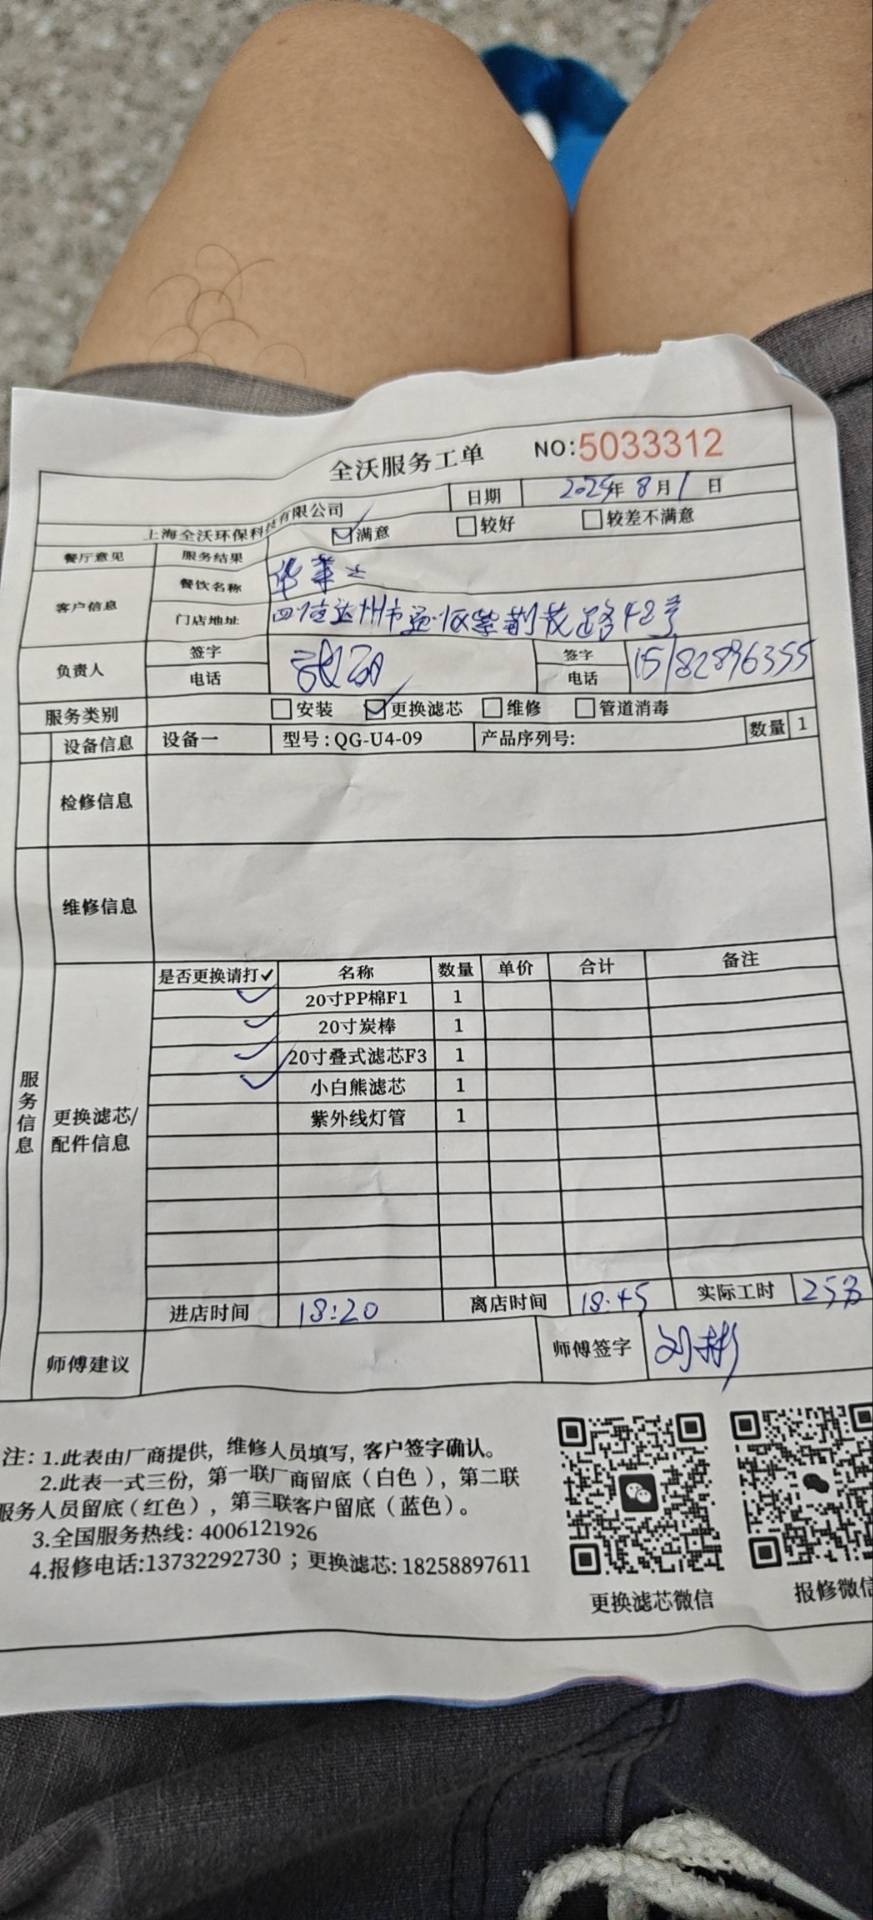 全沃服务工单 NO:5033312
上海全沃环保科技有限公司 日期 2025年8月1日
餐厅意见 服务结果 满意 较好 较差不满意
客户信息 餐饮名称 华莱士
门店地址 四川省达州市通川区紫荆花路42号
负责人 签字 签字
电话 电话 15182896355
服务类别 安装 更换滤芯 维修 管道消毒
设备信息 设备一 型号:QG-U4-09 产品序列号: 数量 1
检修信息
维修信息
服务信息
更换滤芯/配件信息
是否更换请打✓ 名称 数量 单价 合计 备注
✓ 20寸PP棉F1 1
✓ 20寸炭棒 1
✓ 20寸叠式滤芯F3 1
✓ 小白熊滤芯 1
紫外线灯管 1
进店时间 18:20 离店时间 18:45 实际工时 25
师傅建议 师傅签字 刘彬
注:1.此表由厂商提供,维修人员填写,客户签字确认。
2.此表一式三份,第一联厂商留底(白色),第二联
服务人员留底(红色),第三联客户留底(蓝色)。
3.全国服务热线:4006121926
4.报修电话:13732292730;更换滤芯:18258897611
更换滤芯微信 报修微信